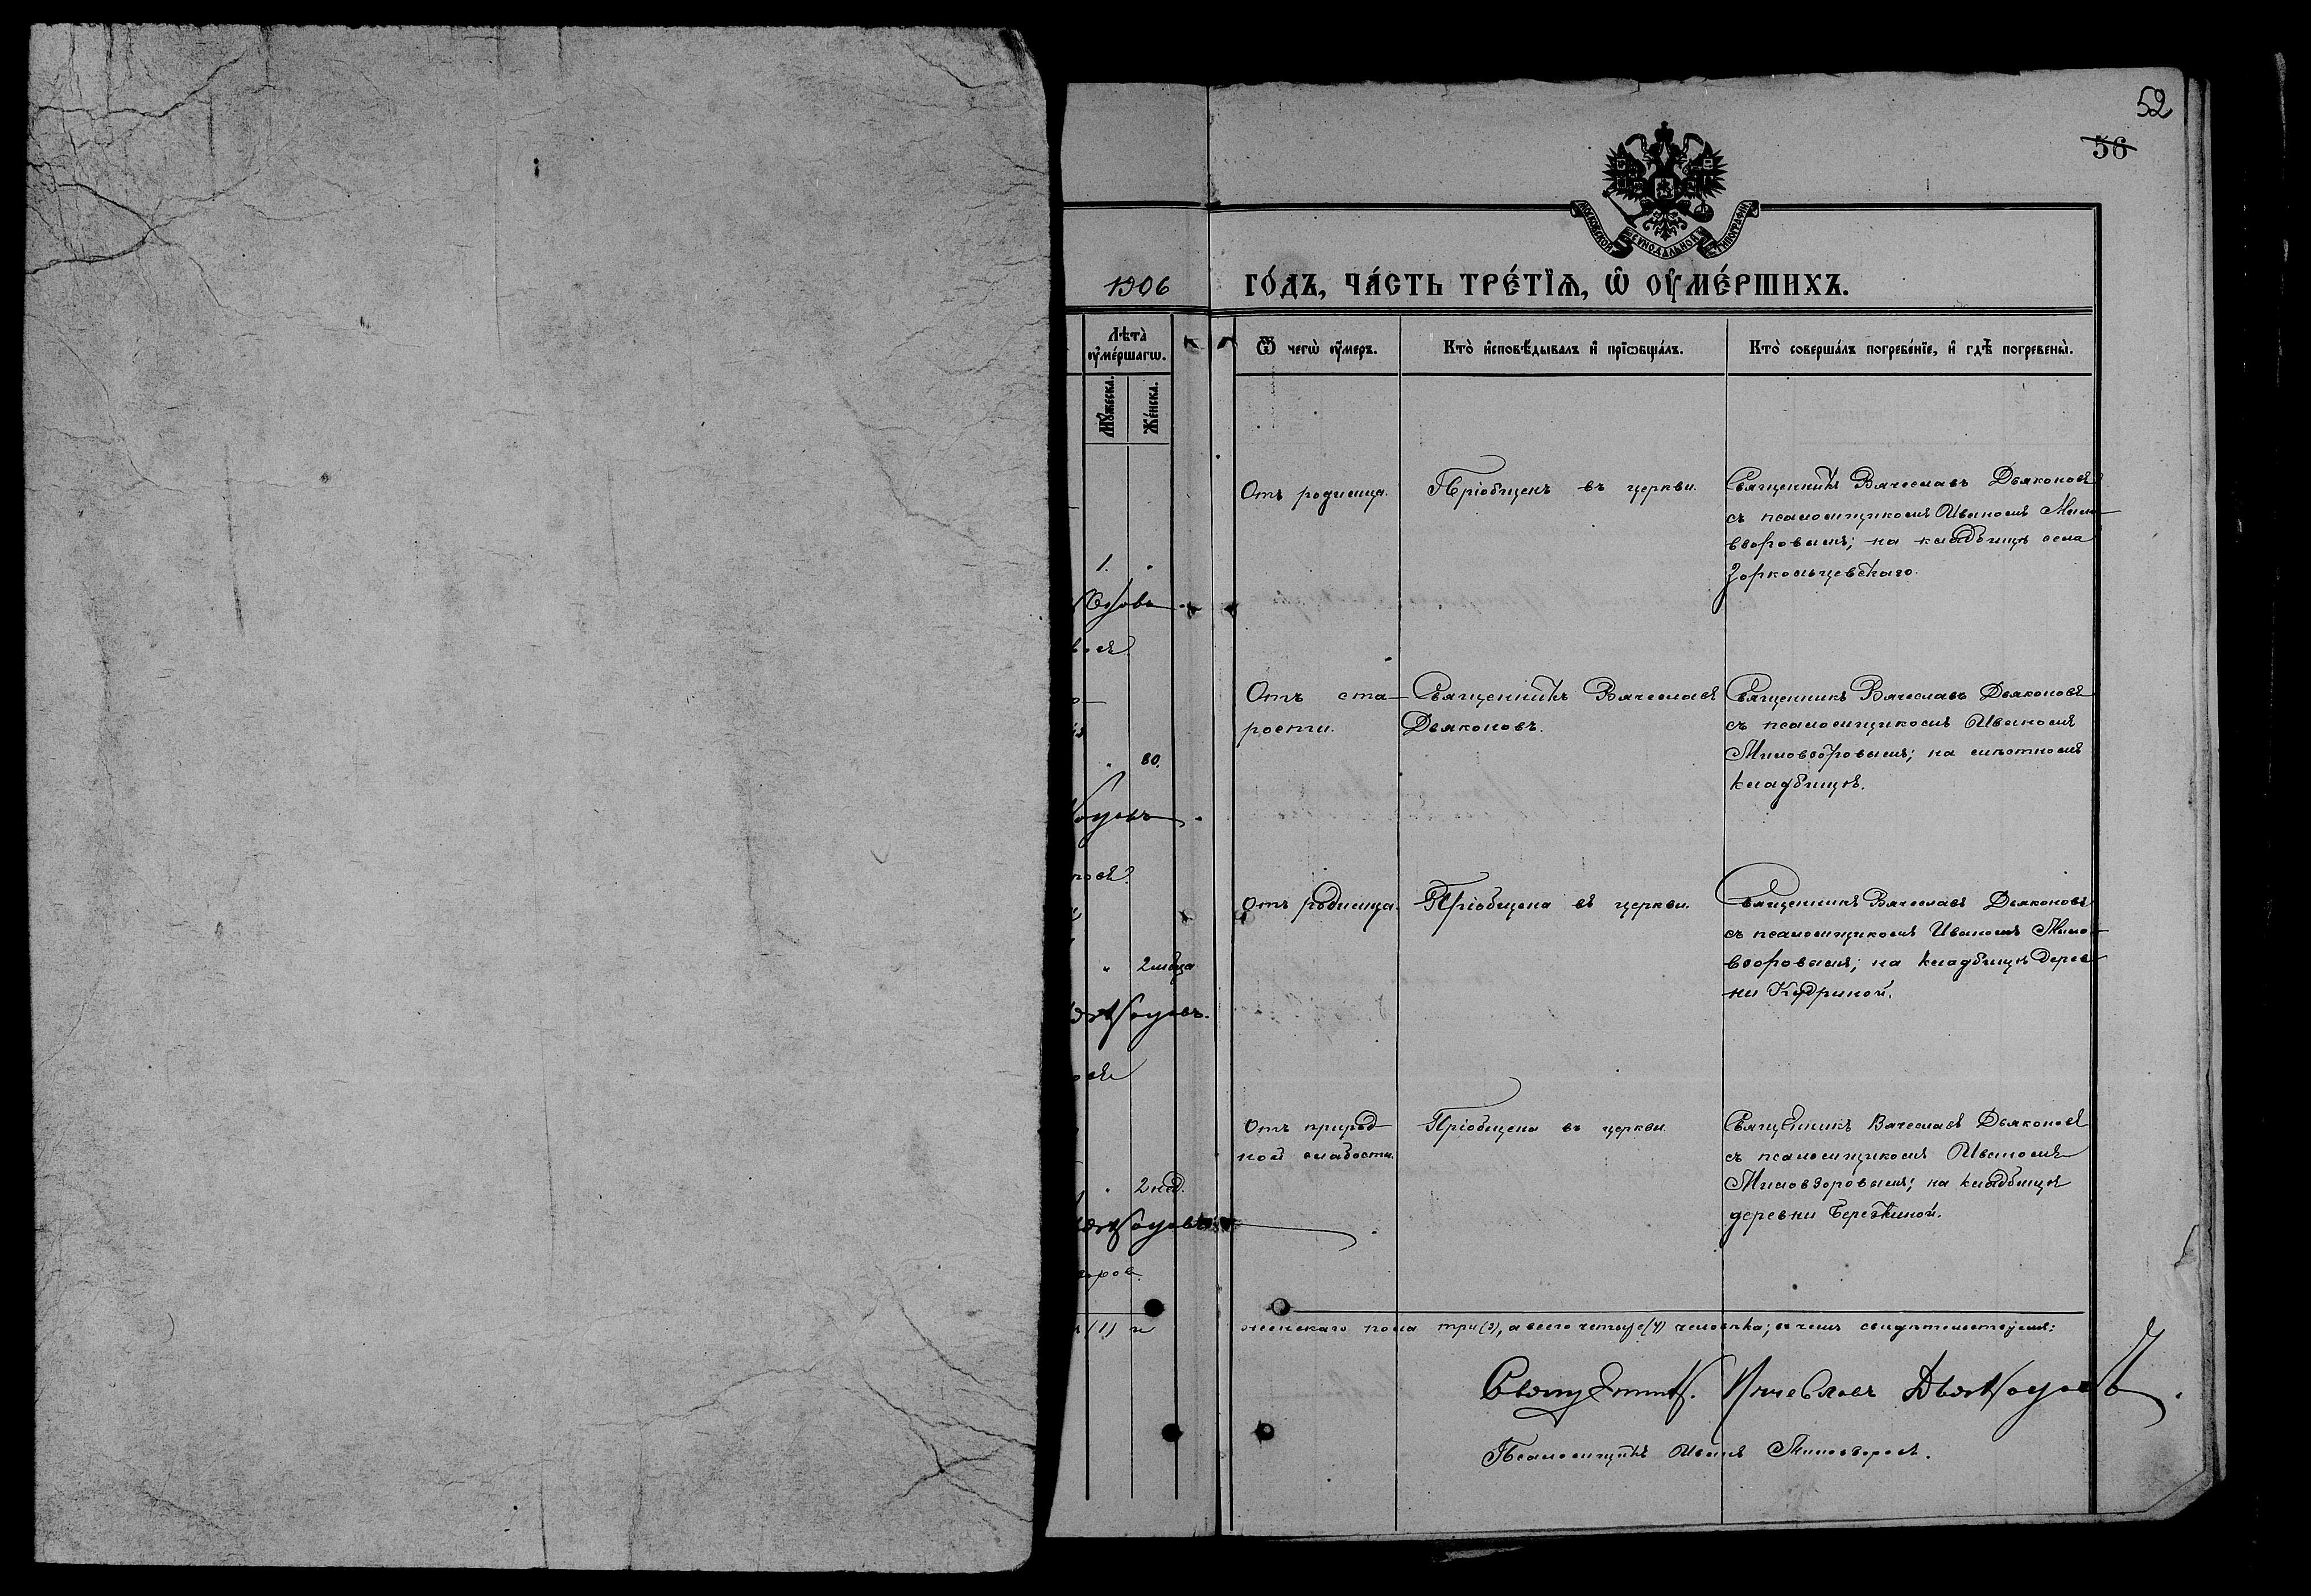 52
56
МОСКОВСКОЙ СѴНОДАЛЬНОЙ ТИПОГРАФІИ
1906 го́дъ, ча́сть тре́тїѧ, ѡ҆ ᲂу҆ме́ршихъ.
Лѣта̀ ᲂу҆ме́ршагѡ.
Мꙋ́жеска.
Же́нска.
Ѿ чегѡ̀ ᲂу҆́меръ.
Кто̀ и҆сповѣ́дывалъ и҆ прїѡбща́лъ.
Кто̀ соверша́лъ погребе́нїе, и҆ гдѣ̀ погребены̀.
1.
Отъ родимца.
Пріобщенъ въ церкви.
Священникъ Вячеславъ Дьяконовъ
съ псаломщикомъ Иваномъ Мило-
взоровымъ; на кладбищѣ села
Зоркольцевскаго.
80.
Отъ ста-
рости.
Священникъ Вячеславъ
Дьяконовъ.
Священникъ Вячеславъ Дьяконовъ
съ псаломщикомъ Иваномъ
Миловзоровымъ; на мѣстномъ
кладбищѣ.
2 мѣсяца
Отъ родимца.
Пріобщена въ церкви.
Священникъ Вячеславъ Дьяконовъ
съ псаломщикомъ Иваномъ Мило-
взоровымъ; на кладбищѣ дерев-
ни Кудриной.
2 нед.
Отъ природ-
ной слабости.
Пріобщена въ церкви.
Священникъ Вячеславъ Дьяконовъ
съ псаломщикомъ Иваномъ
Миловзоровымъ; на кладбищѣ
деревни Березкиной.
(1) и женскаго пола три (3), а всего четыре (4) человѣка; въ чемъ свидѣтельствуемъ:
Священник. Вячеславъ Дьяконовъ.
Псаломщикъ Иванъ Миловзоровъ.